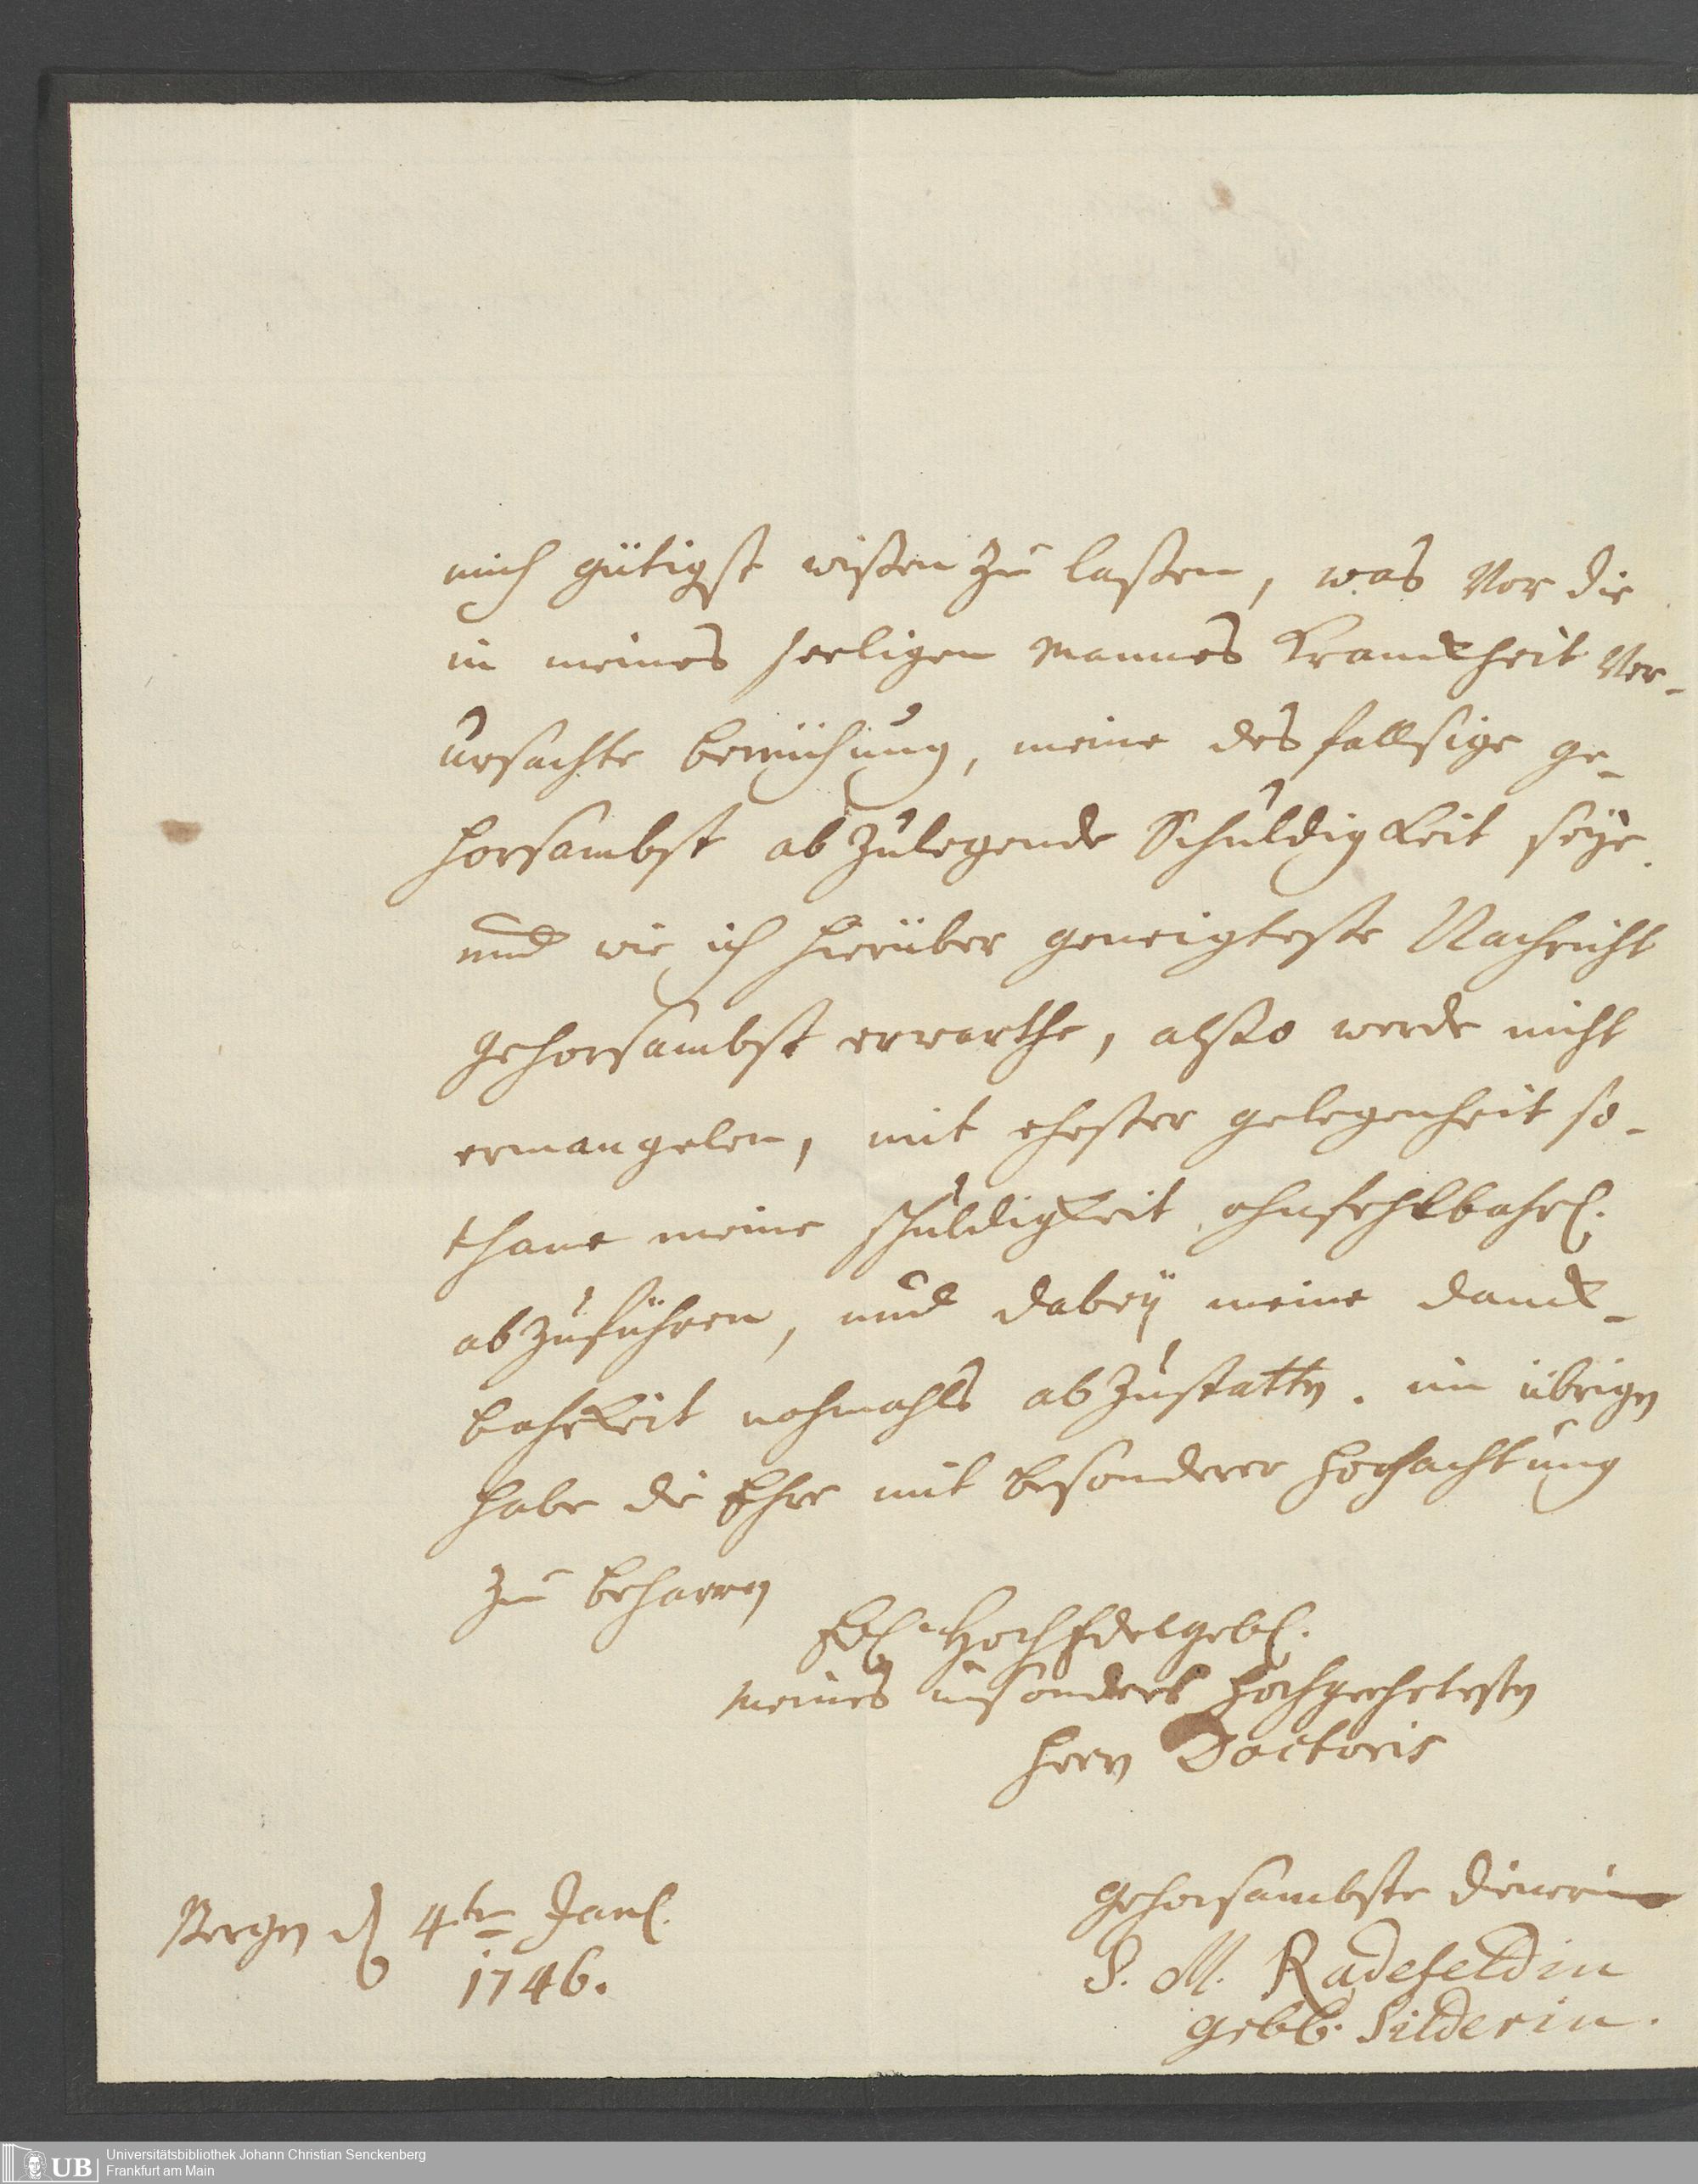 mich gütigst wißen zu laßen, was vor die
in meines seeligen Mannes Kranckheit ver-
ursachte bemühung, meine desfallsige ge-
horsambst abzulegende Schuldigkeit seye.
und wie ich hierüber geneigteste Nachricht
gehorsambst erwarthe, alßo werde nicht
ermangelen, mit ehester gelegenheit so-
thane meine schuldigkeit ohnfehlbahrl.
abzuführen, und dabeÿ meine danck-
bahrkeit nochmahls abzustatten. im übrigen
habe die Ehre mit besonderer hochachtung
zu beharren
Ew. HochEdelgebl.
meines insonders hochgeehrtesten
Herrn Doctoris
gehorsambste dienerin
Bergen d 4ten Jan.
1746.
S. M. Radefeldin
gebl. Silderin.
Universitätsbibliothek Johann Christian Senckenberg
Frankfurt am Main
UB